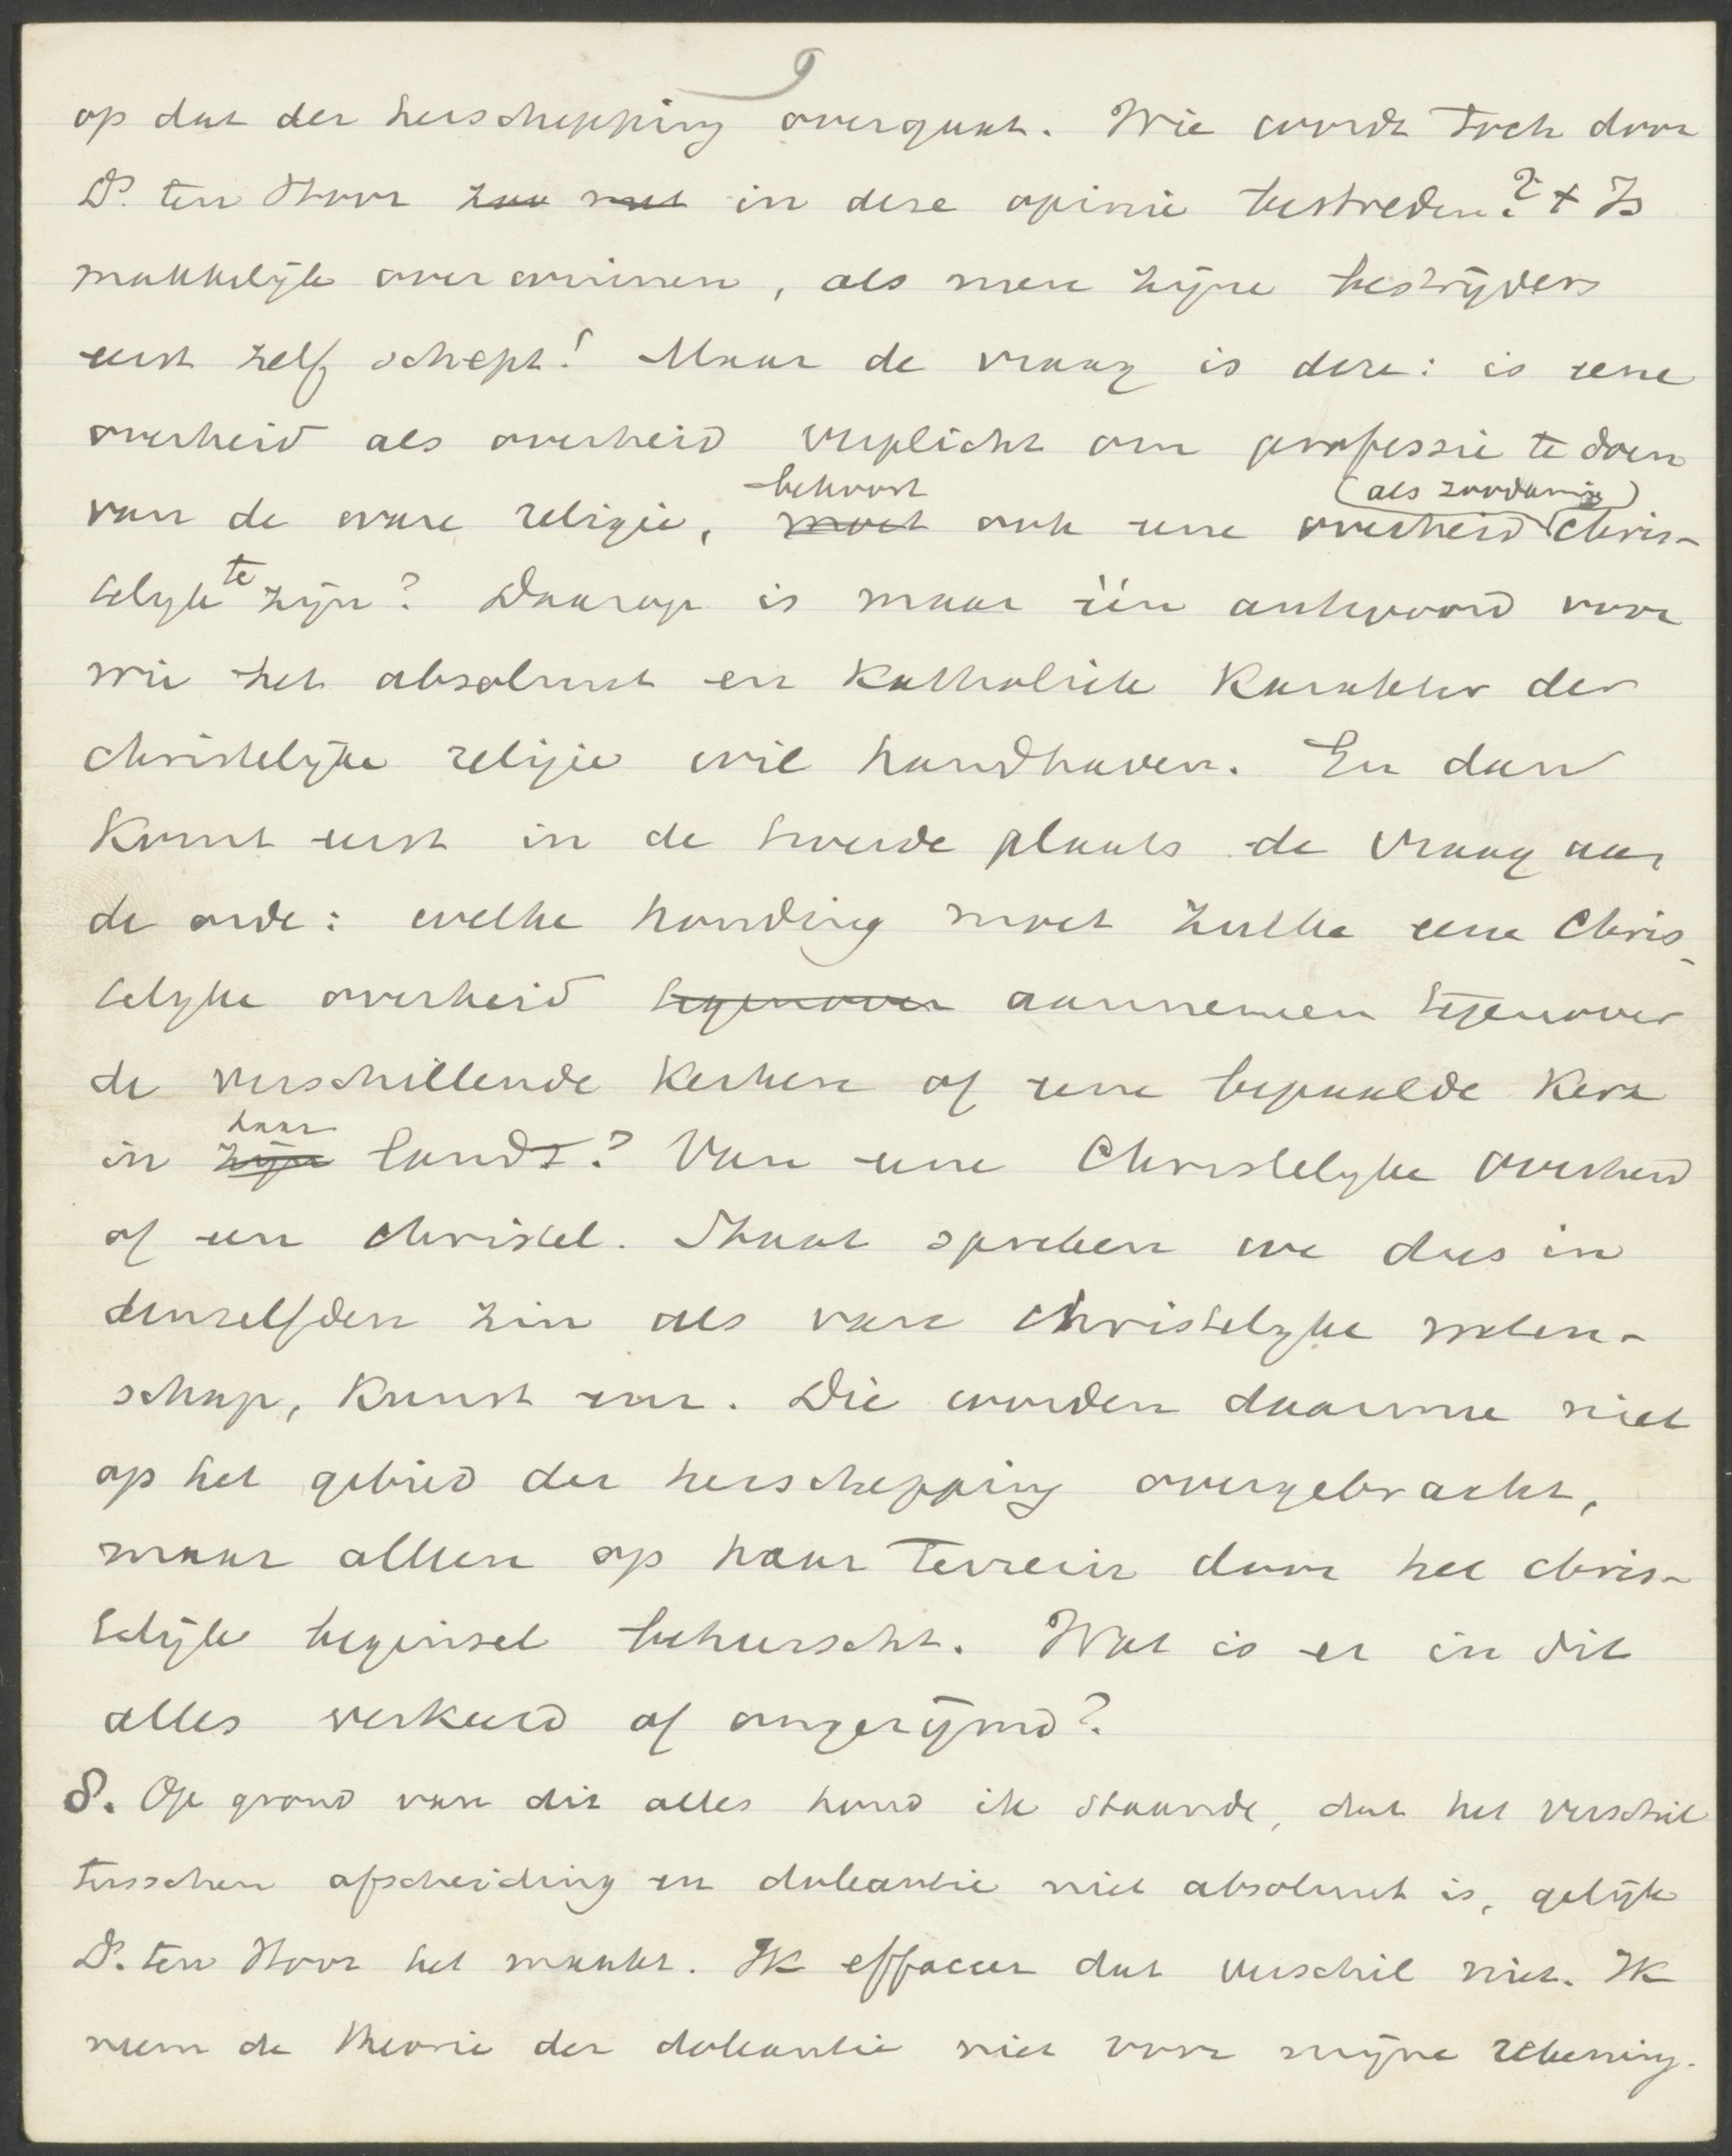 9
op dat der herschepping overgaat. Wie wordt toch door
Ds. ten Hoor in deze opinie bestreden? + Is
makkelijk overwinnen, als men zijne bestrijders
eerst zelf schept! Maar de vraag is deze: is eene
overheid als overheid verplicht om professie te doen
van de ware religie, moet behoort ook eene overheid (als zoodanig) chris-
telijk te zijn? Daarop is maar één antwoord voor
wie het absoluut en katholiek karakter der
christelijke religie wil handhaven. En dan
komt eerst in de tweede plaats de vraag aan
de orde: welke houding moet zulke eene Chris-
telijke overheid tegenover aannemen tegenover
de verschillende kerken of eene bepaalde kerk
in zijn haar land? Van eene Christelijke overheid
of een christel. Staat spreken we dus in
denzelfden zin als van christelijke weten-
schap, kunst enz. Die worden daarmee niet
op het gebied der herschepping overgebracht,
maar alleen op haar terrein door het chris-
telijk beginsel beheerscht. Wat is er in dit
alles verkeerd of ongerijmd?
8. Op grond van dit alles houd ik staande, dat het verschil
tusschen afscheiding en doleantie niet absoluut is, gelijk
Ds. ten Hoor het maakt. Ik effaceer dat verschil niet. Ik
neem de theorie der doleantie niet voor mijne rekening.